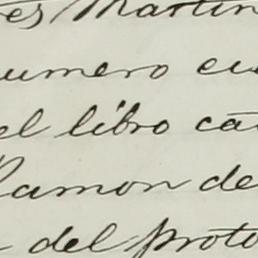 es Martin
umero cu
el libro ca
Ramon de
del proto